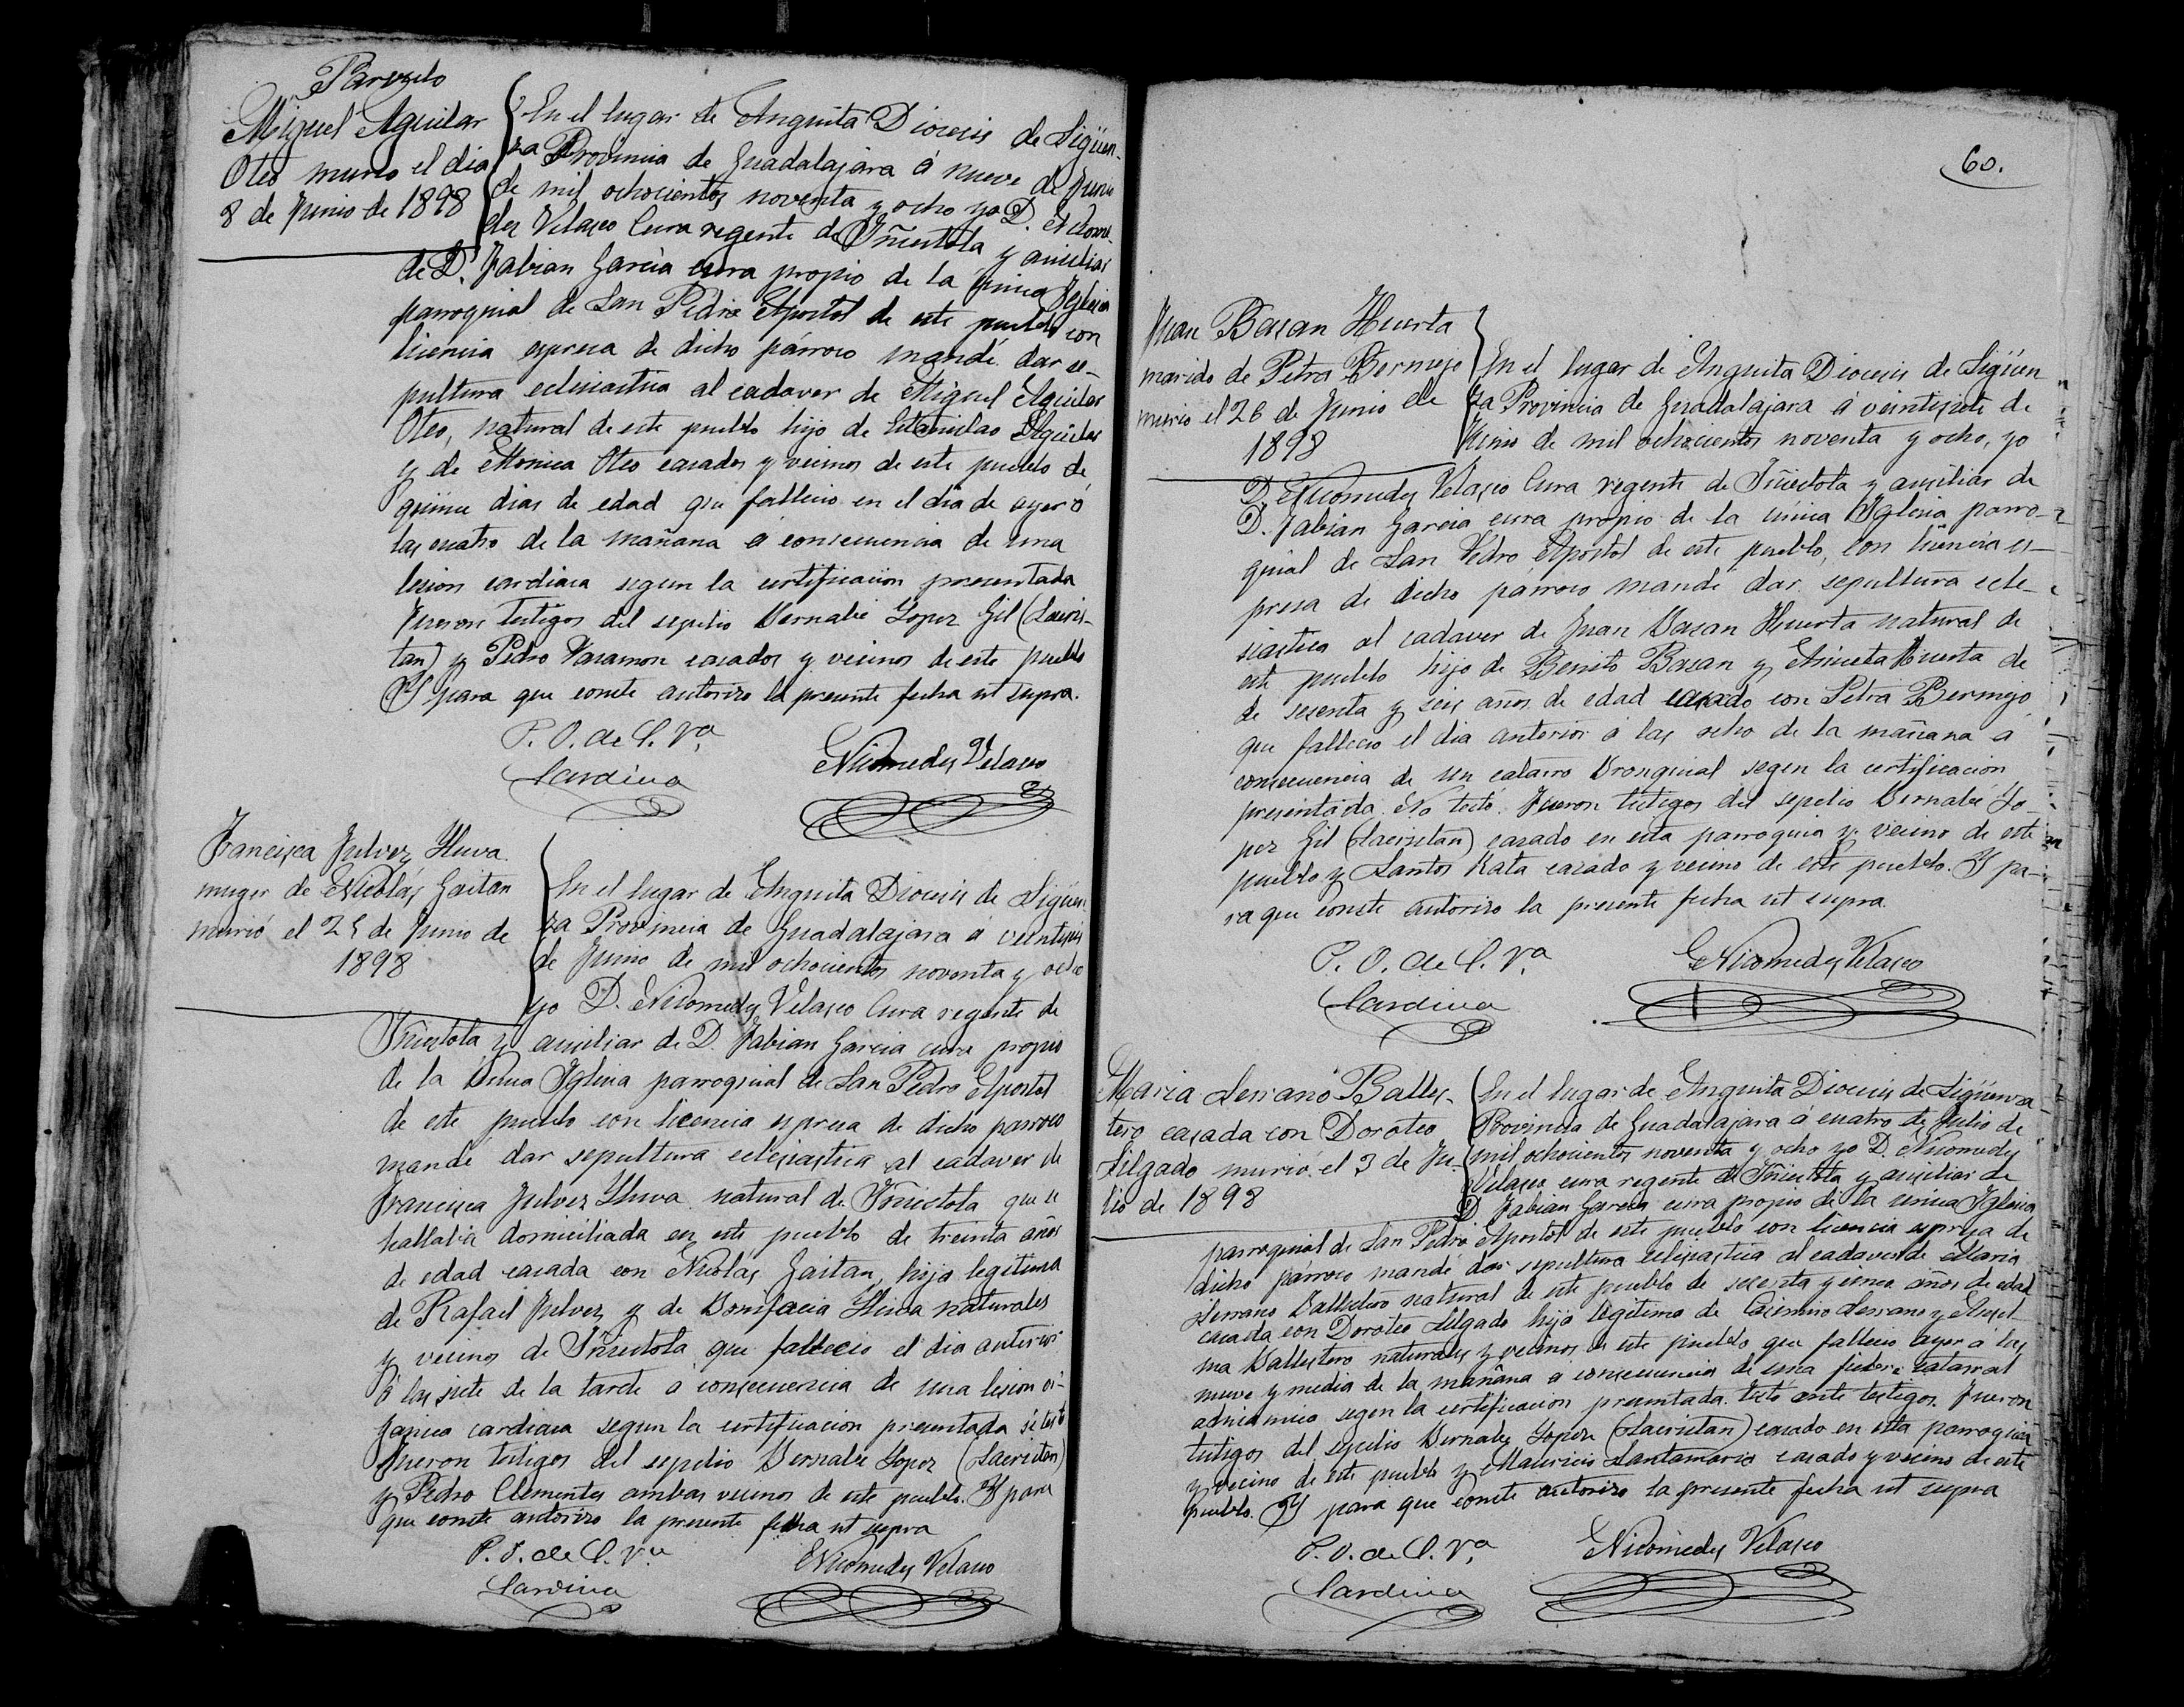 Parvulo
Miguel Aguilar
Oteo murio el dia
8 de Junio de 1898
En el lugar de Anguita Diocesis de Sigüen-
za Provincia de Guadalajara á nueve de Junio
de mil ochocientos noventa y ocho yo D. Nicome-
des Velasco Cura regente de Iñiestola y auxiliar
de D. Fabian Garcia cura propio de la unica Iglesia
parroquial de San Pedro Apostol de este pueblo con
licencia espresa de dicho párroco mandé dar se-
pultura eclesiastica al cadaver de Miguel Aguilar
Oteo, natural de este pueblo hijo de Estanislao Aguilar
y de Monica Oteo casados y vecinos de este pueblo de
quince dias de edad que fallecio en el dia de ayer á
las cuatro de la mañana á consecuencia de una
lesion cardiaca segun la certificacion presentada
Fueron testigos del sepelio Bernabé Lopez Gil (Sacris-
tan) y Pedro casados y vecinos de este pueblo
Y para que conste autorizo la presente fecha ut supra.
P. O. de S. Vª
Nicomedes Velasco
Cardina
Francisca Julvez Huva
muger de Nicolás Gaitan
murió el 25 de Junio de
1898
En el lugar de Anguita Diocesis de Sigüen-
za Provincia de Guadalajara á veintiseis
de Junio de mil ochocientos noventa y ocho
yo D. Nicomedes Velasco Cura regente de
Iñiestola y auxiliar de D. Fabian Garcia cura propio
de la única Iglesia parroquial de San Pedro Apostol
de este pueblo con licencia espresa de dicho parroco
mandé dar sepultura eclesiastica al cadaver de
Francisca Julvez Huva natural de Iñiestola que se
hallaba domiciliada en este pueblo de treinta años
de edad casada con Nicolás Gaitan, hija legitima
de Rafael Julvez y de Bonifacia Huva naturales
y vecinos de Iñiestola que fallecio el dia anterior
á las siete de la tarde a consecuencia de una lesion or-
ganica cardiaca segun la certificacion presentada sé testó
Fueron testigos del sepelio Bernabe Lopez (Sacristan)
y Pedro Clementes ambos vecinos de este pueblo. Y para
que conste autorizo la presente fecha ut supra
P. O. de S. Vª
Nicomedes Velasco
Cardina
60.
Juan Bazan Huerta
marido de Petra Bermejo
murio el 26 de Junio de
1898
En el lugar de Anguita Diocesis de Sigüen
za Provincia de Guadalajara á veintisiete de
Junio de mil ochocientos noventa y ocho, yo
D. Nicomedes Velasco Cura regente de Iñiestola y auxiliar de
D. Fabian Garcia cura propio de la única Iglesia parro-
quial de San Pedro Apostol de este pueblo, con licencia es-
presa de dicho parroco mandé dar sepultura ecle-
siastica al cadaver de Juan Bazan Huerta natural de
este pueblo hijo de Benito Bazan y Aniceta Huerta de
de sesenta y seis años de edad casado con Petra Bermejo
que fallecio el dia anterior á las ocho de la mañana á
consecuencia de un catarro bronquial segun la certificacion
presentada. No testó. Fueron testigos del sepelio Bernabé Lo-
pez Gil (Sacristan) casado en esta parroquia y vecino de este
pueblo y Santos Rata casado y vecino de este pueblo. Y pa-
ra que conste autorizo la presente fecha ut supra.
P. O. de S. Vª
Nicomedes Velasco
Cardina
Maria Serrano Balles-
tero casada con Doroteo
Silgado murió el 3 de Ju-
lio de 1898
En el lugar de Anguita Diocesis de Sigüenza
Provincia de Guadalajara á cuatro de Julio de
mil ochocientos noventa y ocho yo D. Nicomedes
Velasco cura regente de Iñiestola y auxiliar de
D. Fabian Garcia cura propio de la unica Iglesia
parroquial de San Pedro Apostol de este pueblo con licencia espresa de
dicho párroco mandé dar sepultura eclesiastica al cadaver de Maria
Serrano Ballestero natural de este pueblo de sesenta y cinco años de edad
casada con Doroteo Silgado hija legitima de Casimiro Serrano y Ansel-
ma Ballestero naturales y vecinos de este pueblo que fallecio ayer á las
nueve y media de la mañana a consecuencia de una fiebre catarral
adinamica segun la certificacion presentada. testó ante testigos. Fueron
testigos del sepelio Bernabe Lopez (Sacristan) casado en esta parroquia
y vecino de este pueblo y Mauricio Santamaria casado y vecino de este
pueblo. Y para que conste autorizo la presente fecha ut supra
P. O. de S. Vª
Nicomedes Velasco
Cardina